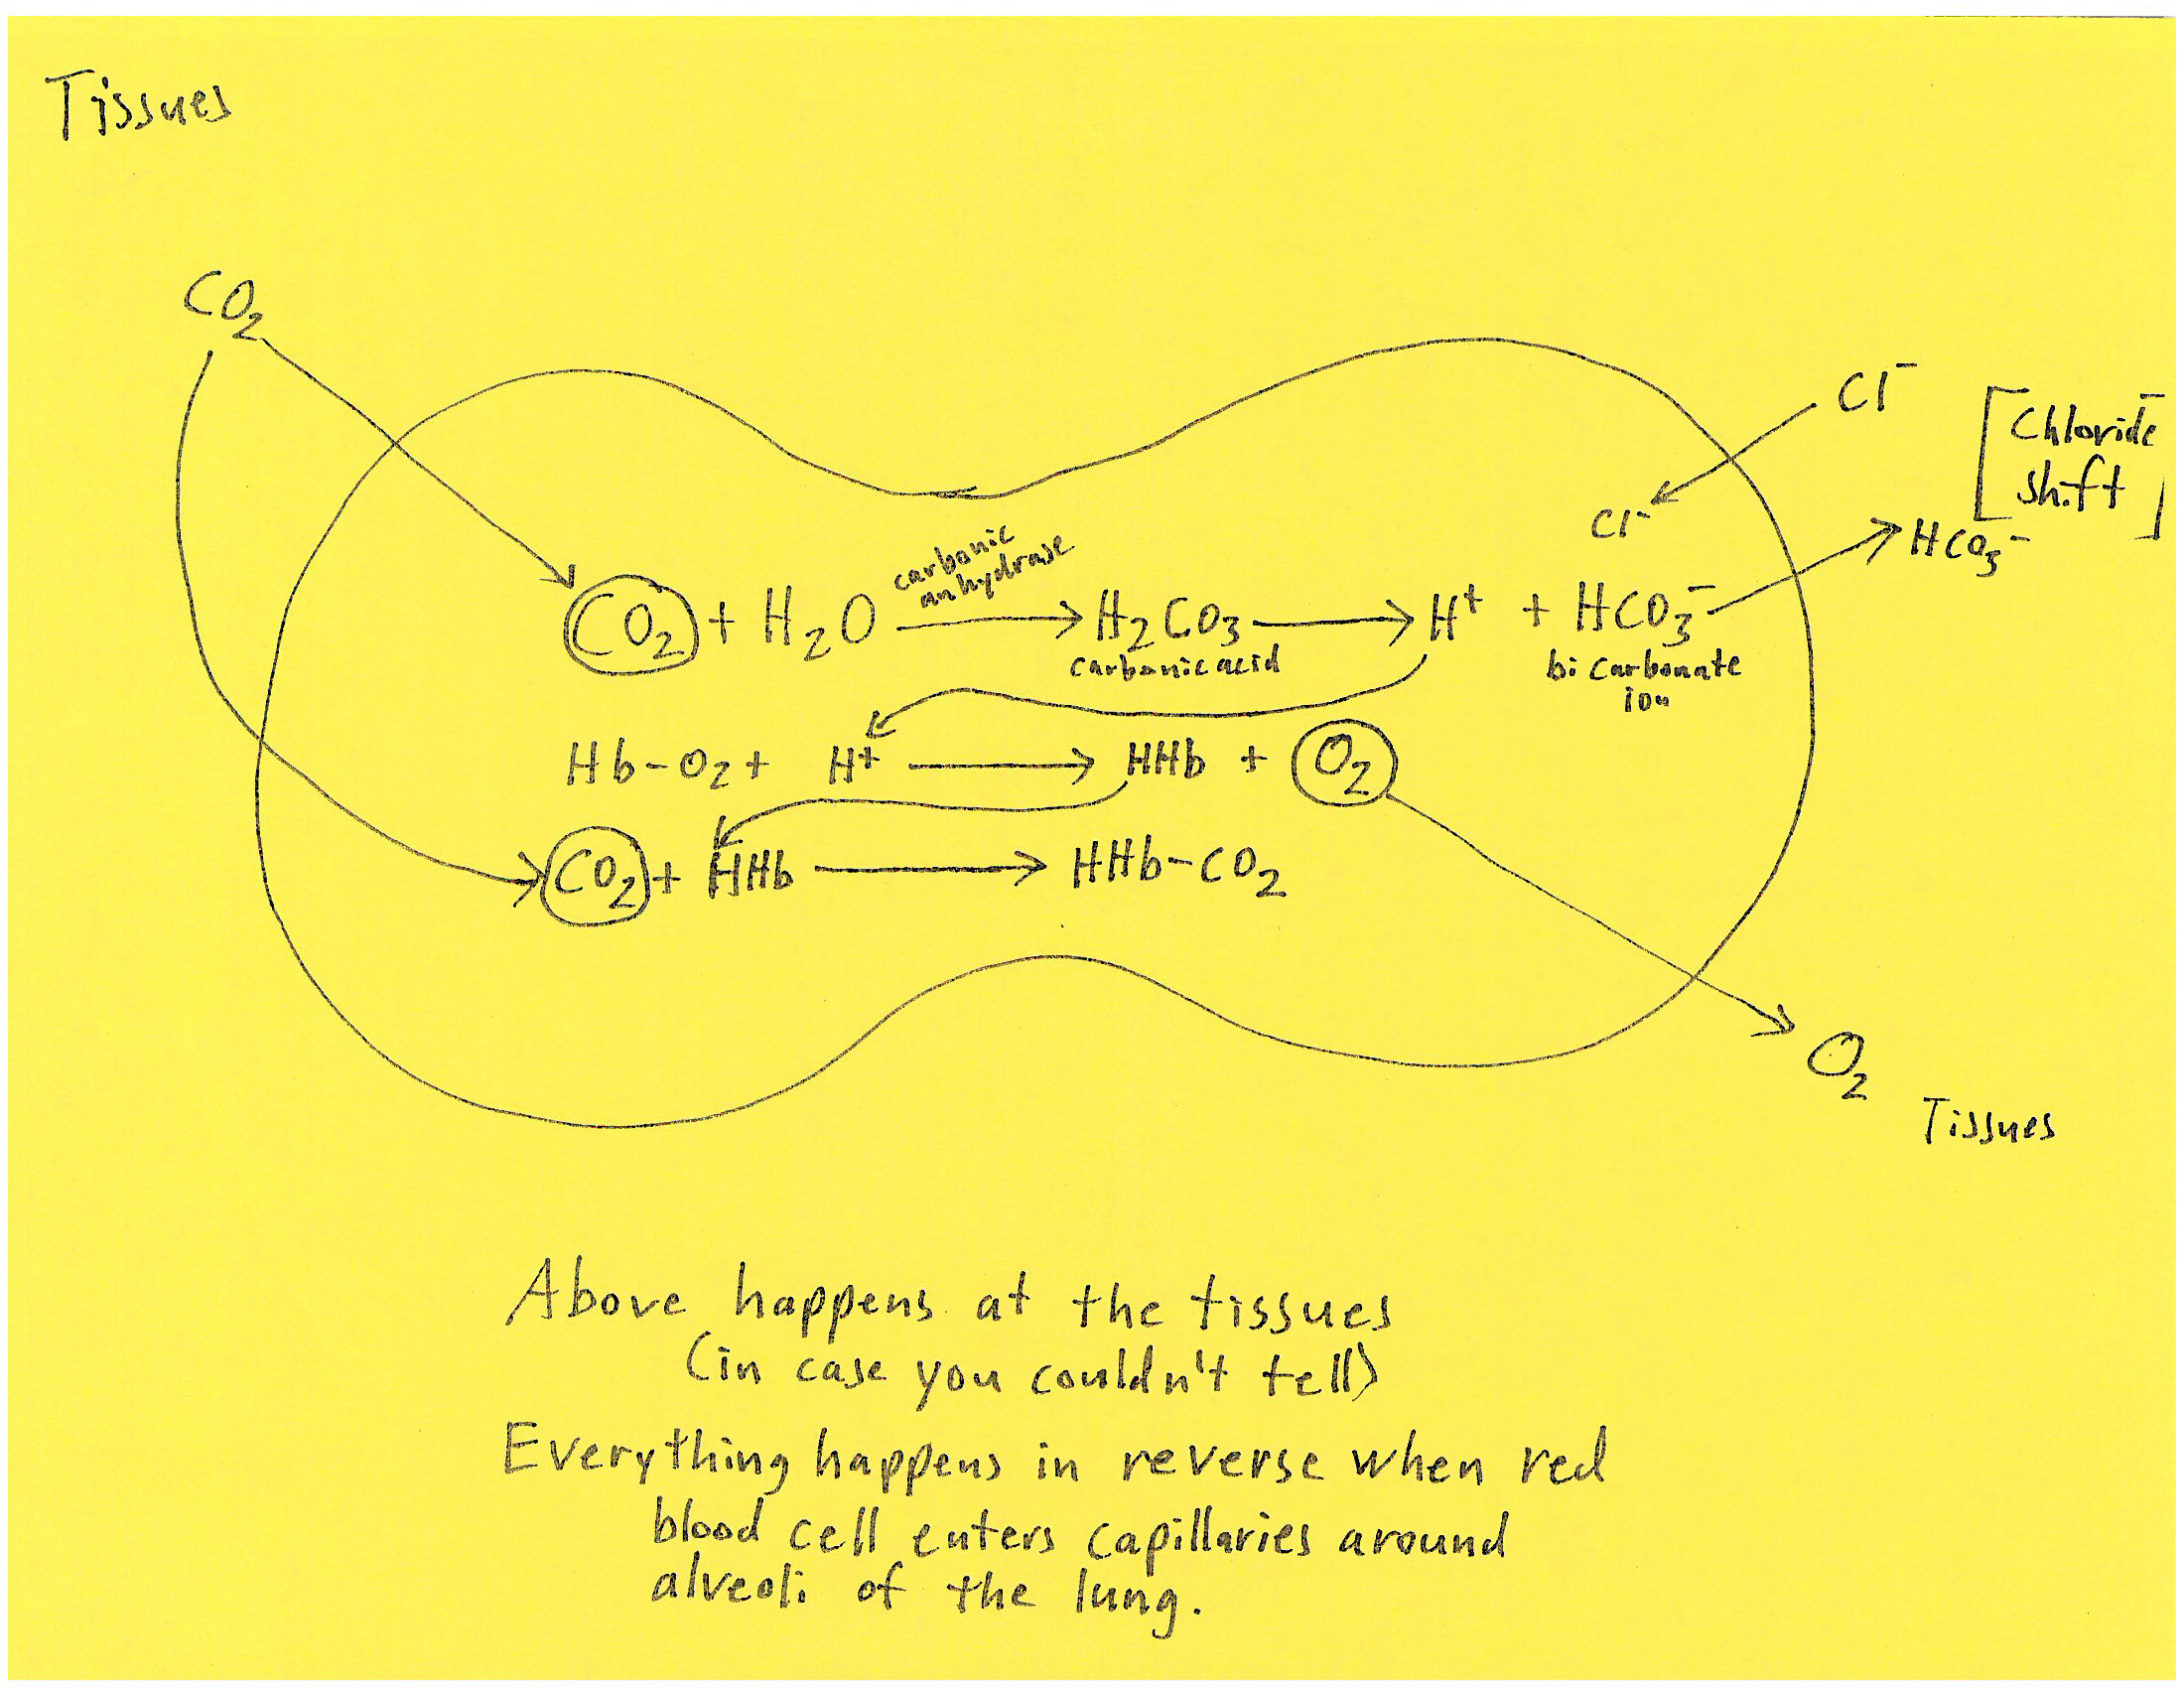 Tissues
CO₂
Cl⁻
[Chloride
shift]
Cl⁻
HCO₃⁻
carbonic
anhydrase
CO₂ + H₂O → H₂CO₃ → H⁺ + HCO₃⁻
carbonic acid
bicarbonate
ion
Hb-O₂ + H⁺ → HHb + O₂
CO₂ + HHb → HHb-CO₂
O₂
Tissues
Above happens at the tissues
(in case you couldn't tell)
Everything happens in reverse when red
blood cell enters capillaries around
alveoli of the lung.